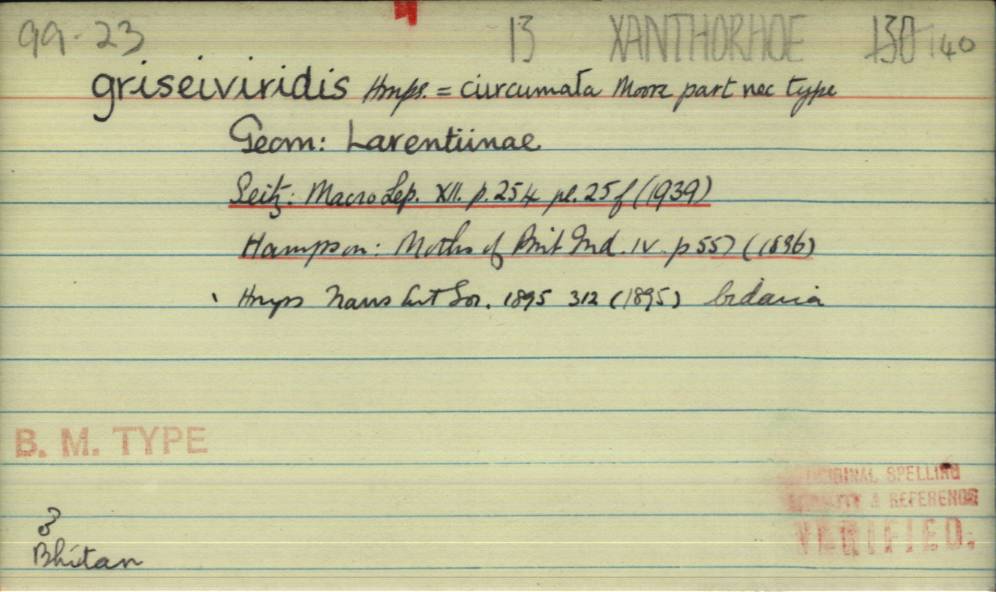 99-23 13 XANTHORHOE 130 140
griseiviridis Hmps. = circumata Moore part nec type
Geom: Larentiinae
Seitz: Macro Lep. XII. p. 254 pl. 25 f (1939)
Hampson: Moths of Brit Ind. IV p 557 (1896)
Hmps Trans Ent Soc. 1895 312 (1895) Cidaria
B. M. TYPE
ORIGINAL SPELLING
LOCALITY & REFERENCE
VERIFIED.
♂
Bhutan